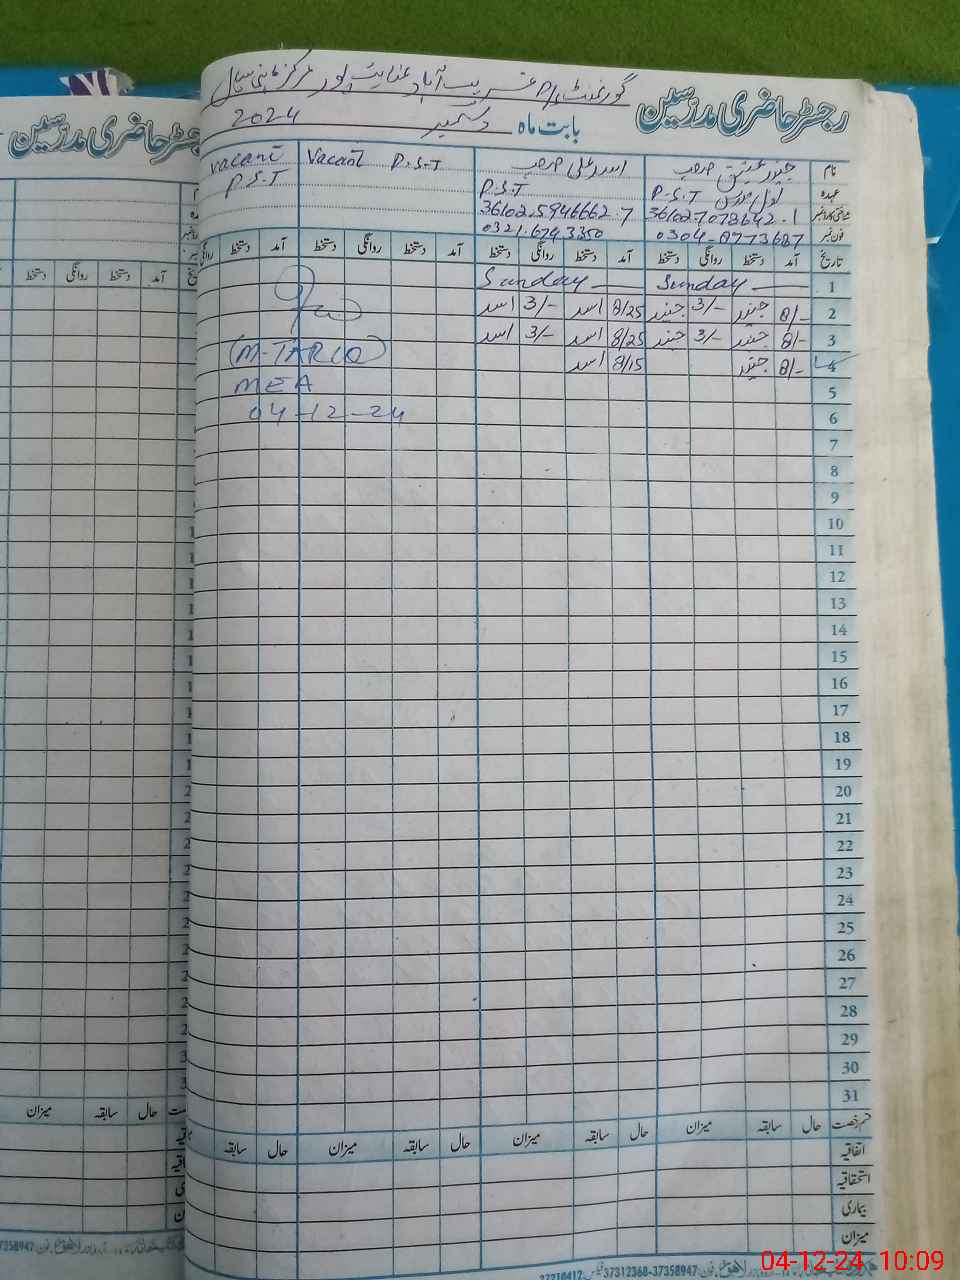 رجسٹر حاضری مدرسین
گورنمنٹ P/S غریب آباد عنایت پور مرکز
بابت ماہ دسمبر 2024
نام جنید صاحب اسد علی صاحب Vacant P.S.T vacant
عہدہ P.S.T P.S.T P.S.T
شناختی کارڈ نمبر 36102.5946662.7
فون نمبر 0304-8773687 0321.6743350
تاریخ آمد دستخط روانگی دستخط آمد دستخط روانگی دستخط آمد دستخط روانگی دستخط آمد دستخط روانگی
1 Sunday Sunday
2 8/- جنید 3/- جنید 8/25 اسد 3/- اسد
3 8/- جنید 3/- جنید 8/25 اسد 3/- اسد
4 8/- جنید 8/15 اسد
(M-TARIQ)
MEA
04-12-24
5
6
7
8
9
10
11
12
13
14
15
16
17
18
19
20
21
22
23
24
25
26
27
28
29
30
31
قسم رخصت حال سابقہ میزان حال سابقہ میزان حال سابقہ میزان حال سابقہ
اتفاقیہ
استحقاقیہ
بیماری
میزان
37312368-37358947
رجسٹر حاضری مدرسین
آمد دستخط روانگی دستخط
حال سابقہ میزان
04-12-24 10:09